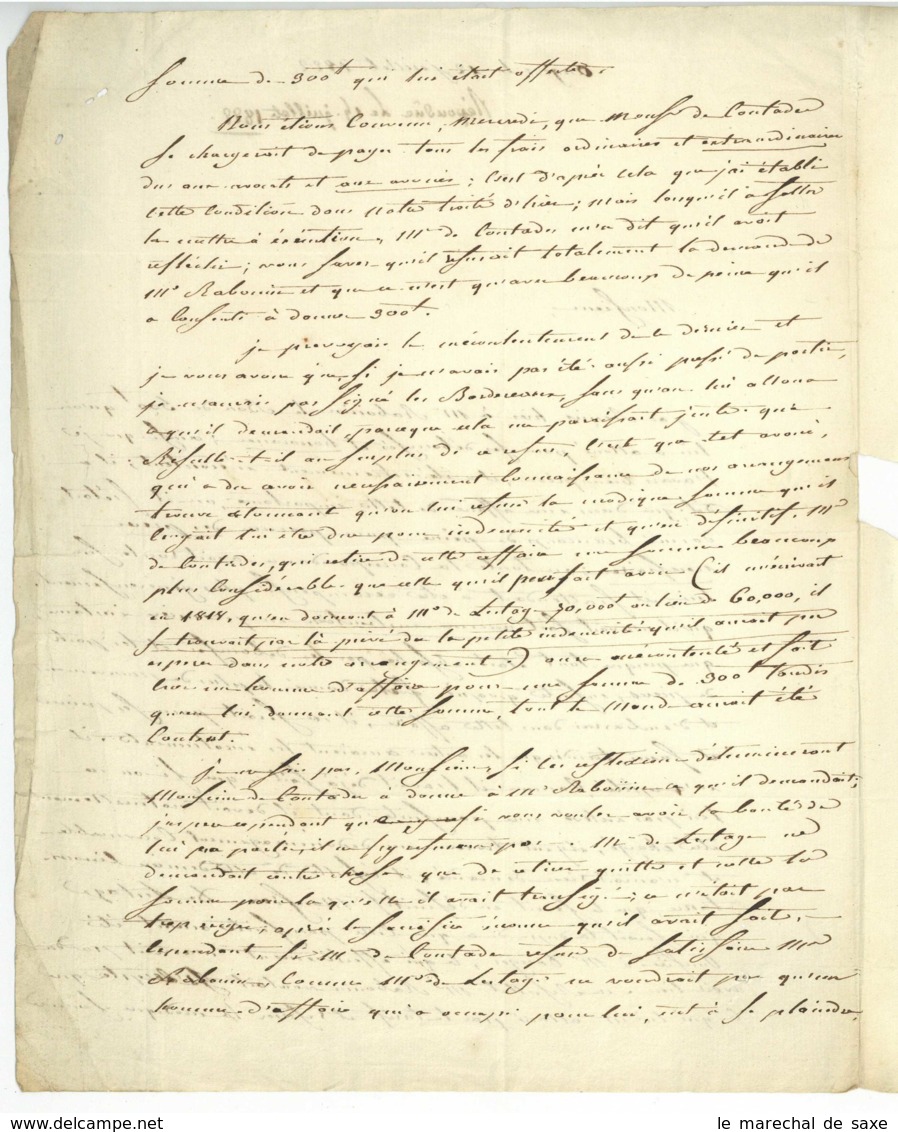 Somme de 300# qui lui était offerte.
Nous étions Convenu, Mercredi, que Monsr de Contades
Se chargerait de payer tous les frais ordinaires et extraordinaires
dus aux avocats et aux avoués ; C'est d'après cela que j'ai établi
Cette Condition dans notre traité d'hier ; mais lorsqu'il a fallu
la mettre à éxécution, Mr de Contades m'a dit qu'il avait
réfléchi ; vous savez qu'il refusait totalement la demande de
Mr Rabouin et que ce n'est qu'avec beaucoup de peine qu'il
a Consenti à donner 300#.
je prevoyais le mécontentement de ce dernier et
je vous avoue que, si je n'avais pas été aussi pressé de partir,
je n'aurais pas Signé les Bordereaux, sans qu'on lui allouat
ce qu'il demandait, parceque cela me paraissait juste. que
Résulte-t-il au surplus de ce refus, C'est que cet avoué,
qui a du avoir necessairement Connaissance de nos arrangemens
trouve étonnant qu'on lui refuse la modique somme qu'il
Croyait lui être due pour indemnité et qu'en définitif, Mr
de Contades, qui retire de cette affaire une somme beaucoup
plus Considérable que celle qu'il pensait avoir (il m'écrivait
en 1818, qu'en donnant à Mr de Lestag 70,000# au lieu de 60,000, il
se trouvait par là privé de la petite indemnité qu'il aurait pu
esperer dans notre arrangement.) aura mécontenté et fait
crier un homme d'affaire pour une somme de 300# tandis
qu'en lui donnant cette somme, tout le Monde aurait été
Content.
je ne sais pas, Monsieur, si ces reflexions détermineront
Monsieur de Contades à donner à Mr Rabouin ce qu'il demandait ;
j'espere cependant que si vous voulez avoir la bonté de
lui en parler, il n'y refusera pas. Mr de Lestage ne
demandait autre chose que de retirer quitte et nette la
somme pour laquelle il avait transigé ; ce n'était pas
trop exiger, après le sacrifice énorme qu'il avait fait.
Cependant, si Mr de Contades refuse de satisfaire Mr
Rabouin, Comme Mr de Lestage ne voudrait pas qu'un
homme d'affaire qui a occupé pour lui, eut à se plaindre,
le marechal de saxe